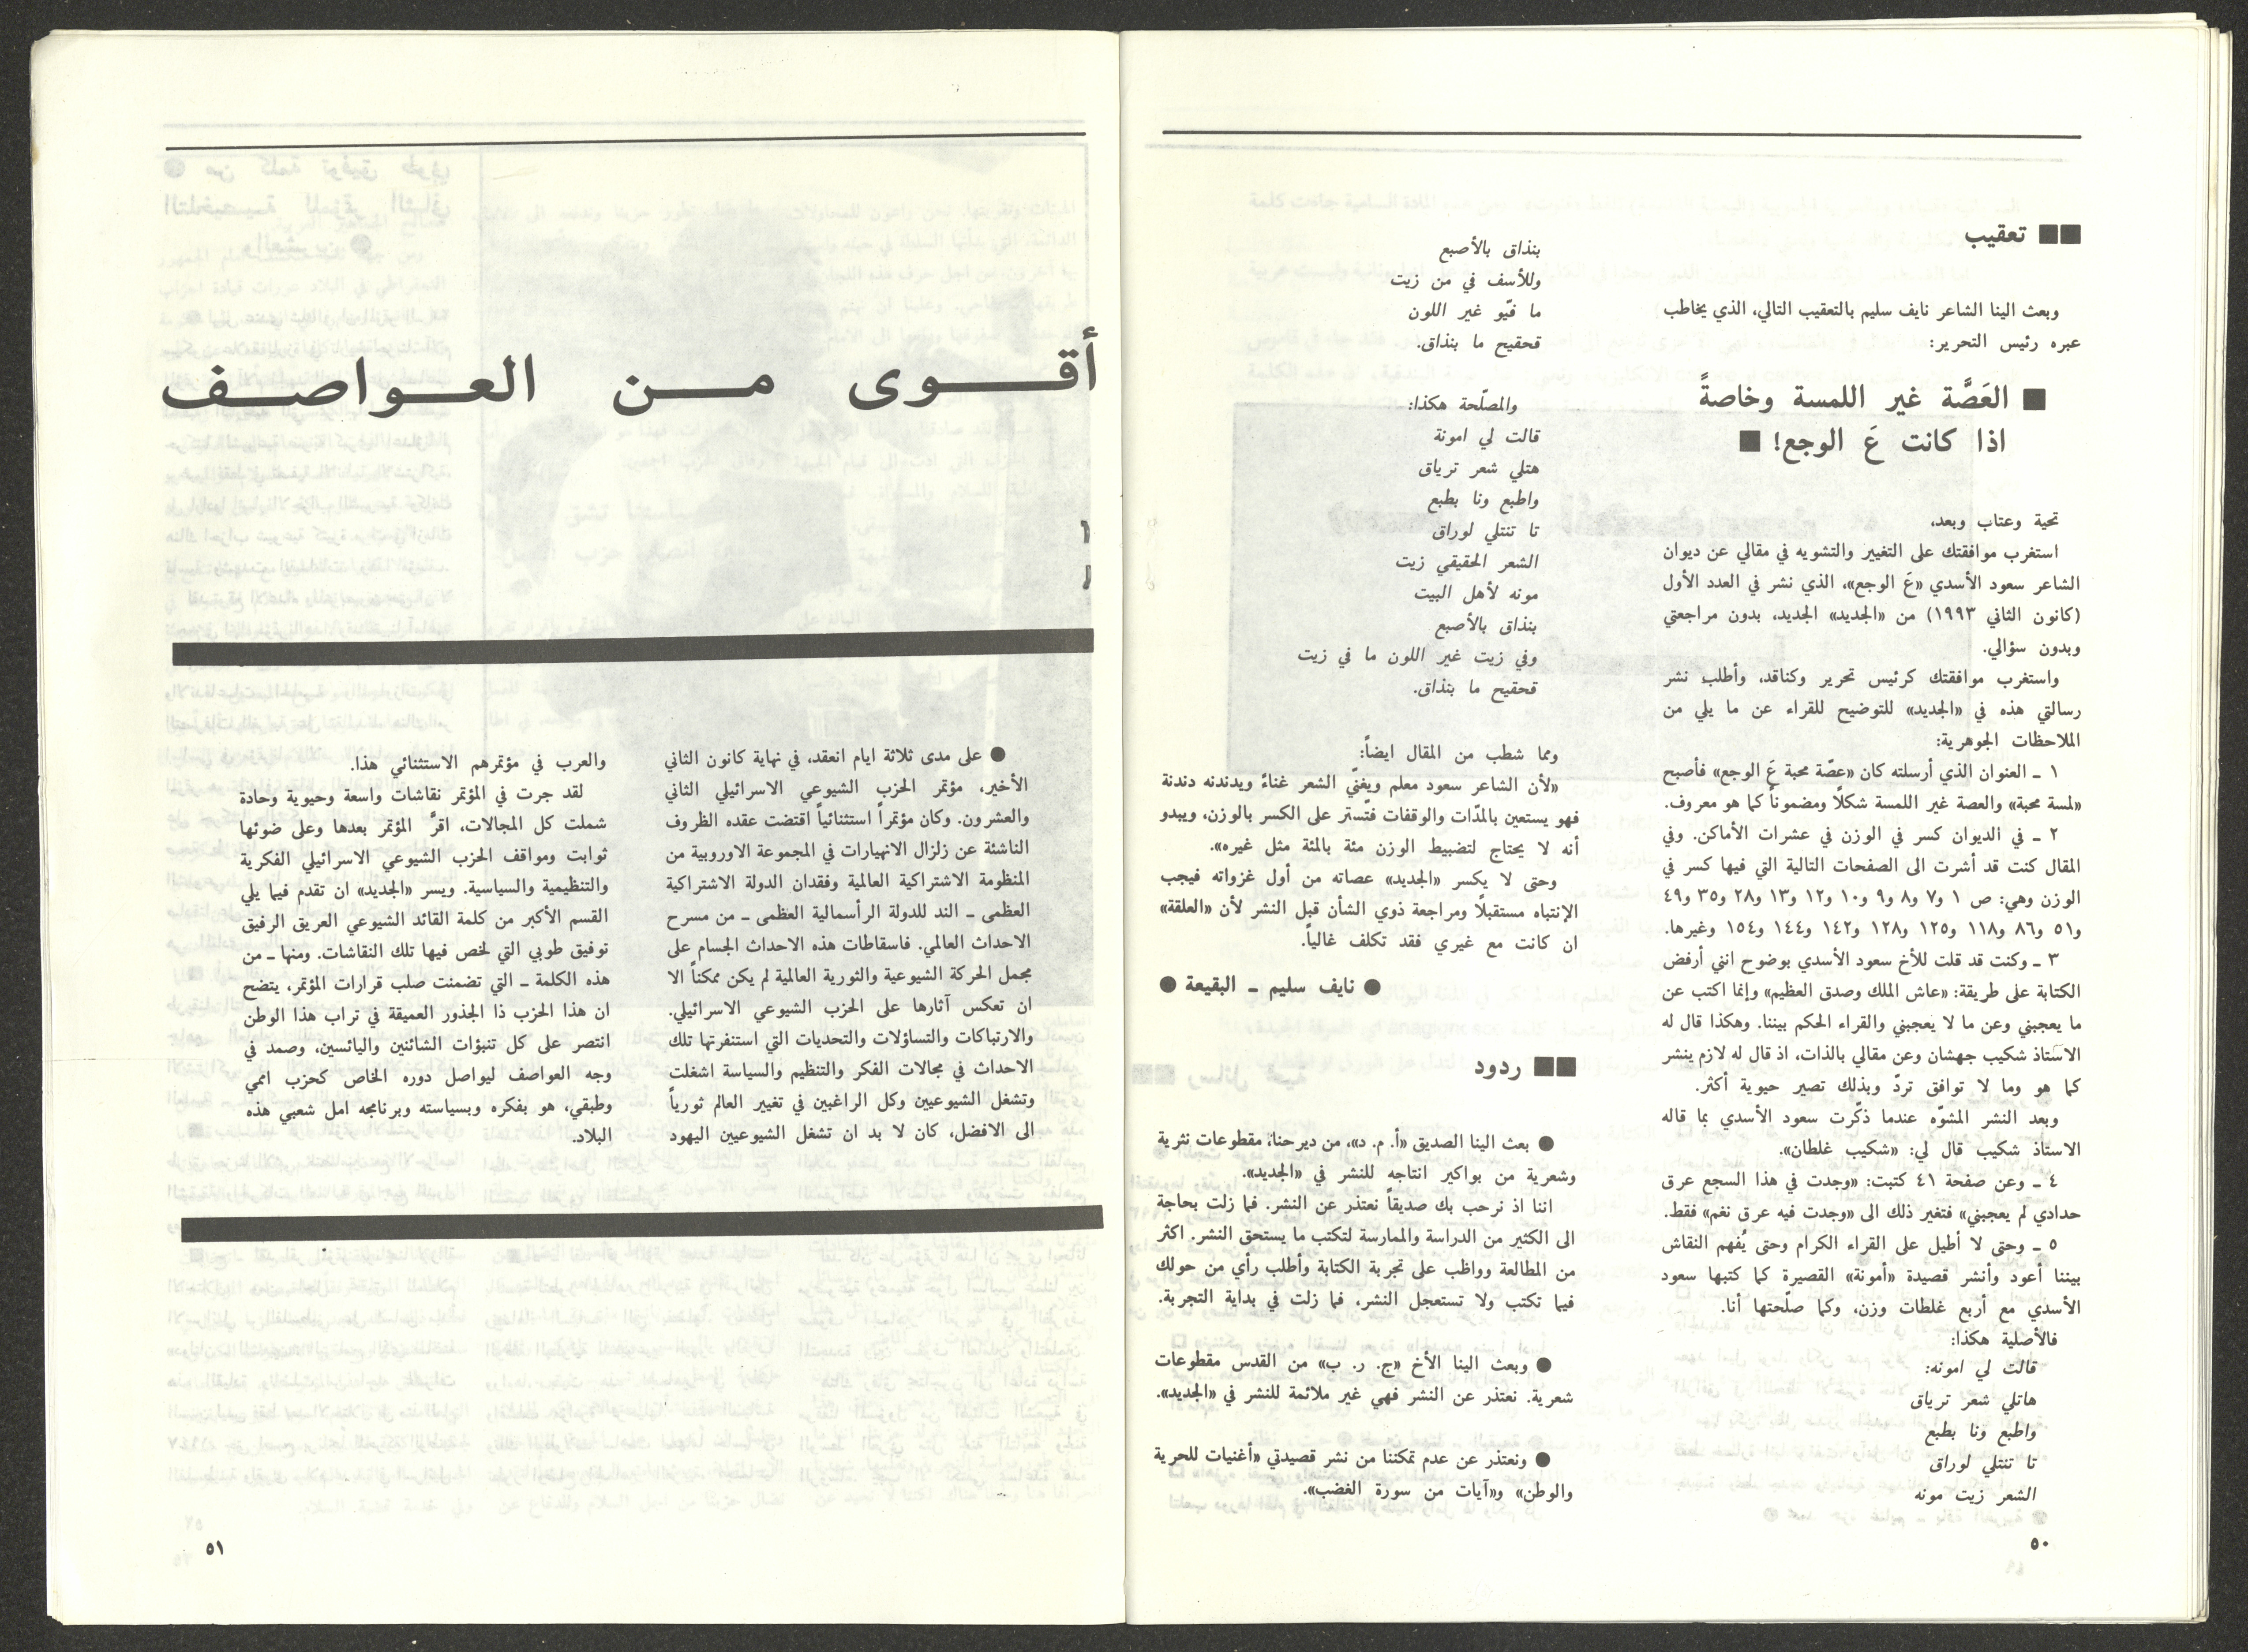 ■■ تعقيب
وبعث الينا الشاعر نايف سليم بالتعقيب التالي، الذي يخاطب
عبره رئيس التحرير:
■ العَصَّة غير اللمسة وخاصةً
اذا كانت عَ الوجع! ■
تحية وعتاب وبعد،
استغرب موافقتك على التغيير والتشويه في مقالي عن ديوان
الشاعر سعود الأسدي «عَ الوجع»، الذي نشر في العدد الأول
(كانون الثاني ١٩٩٣) من «الجديد» الجديد، بدون مراجعتي
وبدون سؤالي.
واستغرب موافقتك كرئيس تحرير وكناقد، وأطلب نشر
رسالتي هذه في «الجديد» للتوضيح للقراء عن ما يلي من
الملاحظات الجوهرية:
١ ـ العنوان الذي أرسلته كان «عصّة محبة عَ الوجع» فأصبح
«لمسة محبة» والعصة غير اللمسة شكلًا ومضموناً كما هو معروف.
٢ ـ في الديوان كسر في الوزن في عشرات الأماكن. وفي
المقال كنت قد أشرت الى الصفحات التالية التي فيها كسر في
الوزن وهي: ص ١ و٧ و٨ و٩ و١٠ و١٢ و١٣ و٢٨ و٣٥ و٤٩
و٥١ و٨٦ و١١٨ و١٢٥ و١٢٨ و١٤٢ و١٤٤ و١٥٤ وغيرها.
٣ ـ وكنت قد قلت للأخ سعود الأسدي بوضوح انني أرفض
الكتابة على طريقة: «عاش الملك وصدق العظيم» وإنما اكتب عن
ما يعجبني وعن ما لا يعجبني والقراء الحكم بيننا. وهكذا قال له
الاستاذ شكيب جهشان وعن مقالي بالذات، اذ قال له لازم ينشر
كما هو وما لا توافق تردّ وبذلك تصير حيوية أكثر.
وبعد النشر المشوّه عندما ذكّرت سعود الأسدي بما قاله
الاستاذ شكيب قال لي: «شكيب غلطان».
٤ ـ وعن صفحة ٤١ كتبت: «وجدت في هذا السجع عرق
حدادي لم يعجبني» فتغير ذلك الى «وجدت فيه عرق نغم» فقط.
٥ ـ وحتى لا أطيل على القراء الكرام وحتى يُفهم النقاش
بيننا أعود وأنشر قصيدة «أمونة» القصيرة كما كتبها سعود
الأسدي مع أربع غلطات وزن، وكما صلّحتها أنا.
فالأصلية هكذا:
قالت لي امونه:
هاتلي شعر ترياق
واطبع ونا بطبع
تا تنتلي لوراق
الشعر زيت مونه
بنذاق بالأصبع
وللأسف في من زيت
ما فيّو غير اللون
قحقيح ما بنذاق.
والمصلّحة هكذا:
قالت لي امونة
هتلي شعر ترياق
واطبع ونا بطبع
تا تنتلي لوراق
الشعر الحقيقي زيت
مونه لأهل البيت
بنذاق بالأصبع
وفي زيت غير اللون ما في زيت
قحقيح ما بنذاق.
ومما شطب من المقال ايضاً:
«لأن الشاعر سعود معلم ويغنّي الشعر غناءً ويدندنه دندنة
فهو يستعين بالمدّات والوقفات فتّستر على الكسر بالوزن، ويبدو
أنه لا يحتاج لتضبيط الوزن مئة بالمئة مثل غيره».
وحتى لا يكسر «الجديد» عصاته من أول غزواته فيجب
الإنتباه مستقبلًا ومراجعة ذوي الشأن قبل النشر لأن «العلقة»
ان كانت مع غيري فقد تكلف غالياً.
● نايف سليم ـ البقيعة ●
■■ ردود
● بعث الينا الصديق «أ. م. د»، من ديرحنا، مقطوعات نثرية
وشعرية من بواكير انتاجه للنشر في «الجديد».
اننا اذ نرحب بك صديقاً نعتذر عن النشر. فما زلت بحاجة
الى الكثير من الدراسة والممارسة لتكتب ما يستحق النشر. اكثر
من المطالعة وواظب على تجربة الكتابة وأطلب رأي من حولك
فيما تكتب ولا تستعجل النشر، فما زلت في بداية التجربة.
● وبعث الينا الأخ «ج. ر. ب» من القدس مقطوعات
شعرية. نعتذر عن النشر فهي غير ملائمة للنشر في «الجديد».
● ونعتذر عن عدم تمكننا من نشر قصيدتي «أغنيات للحرية
والوطن» و«آيات من سورة الغضب».
٥٠
أقوى من العواصف
● على مدى ثلاثة ايام انعقد، في نهاية كانون الثاني
الأخير، مؤتمر الحزب الشيوعي الاسرائيلي الثاني
والعشرون. وكان مؤتمراً استثنائياً اقتضت عقده الظروف
الناشئة عن زلزال الانهيارات في المجموعة الاوروبية من
المنظومة الاشتراكية العالمية وفقدان الدولة الاشتراكية
العظمى ـ الند للدولة الرأسمالية العظمى ـ من مسرح
الاحداث العالمي. فاسقاطات هذه الاحداث الجسام على
مجمل الحركة الشيوعية والثورية العالمية لم يكن ممكناً الا
ان تعكس آثارها على الحزب الشيوعي الاسرائيلي.
والارتباكات والتساؤلات والتحديات التي استنفرتها تلك
الاحداث في مجالات الفكر والتنظيم والسياسة اشغلت
وتشغل الشيوعيين وكل الراغبين في تغيير العالم ثورياً
الى الافضل، كان لا بد ان تشغل الشيوعيين اليهود
والعرب في مؤتمرهم الاستثنائي هذا.
لقد جرت في المؤتمر نقاشات واسعة وحيوية وحادة
شملت كل المجالات، اقرَّ المؤتمر بعدها وعلى ضوئها
ثوابت ومواقف الحزب الشيوعي الاسرائيلي الفكرية
والتنظيمية والسياسية. ويسر «الجديد» ان تقدم فيما يلي
القسم الأكبر من كلمة القائد الشيوعي العريق الرفيق
توفيق طوبي التي لخص فيها تلك النقاشات. ومنها ـ من
هذه الكلمة ـ التي تضمنت صلب قرارات المؤتمر، يتضح
ان هذا الحزب ذا الجذور العميقة في تراب هذا الوطن
انتصر على كل تنبؤات الشائنين واليائسين، وصمد في
وجه العواصف ليواصل دوره الخاص كحزب اممي
وطبقي، هو بفكره وبسياسته وبرنامجه امل شعبي هذه
البلاد.
٥١